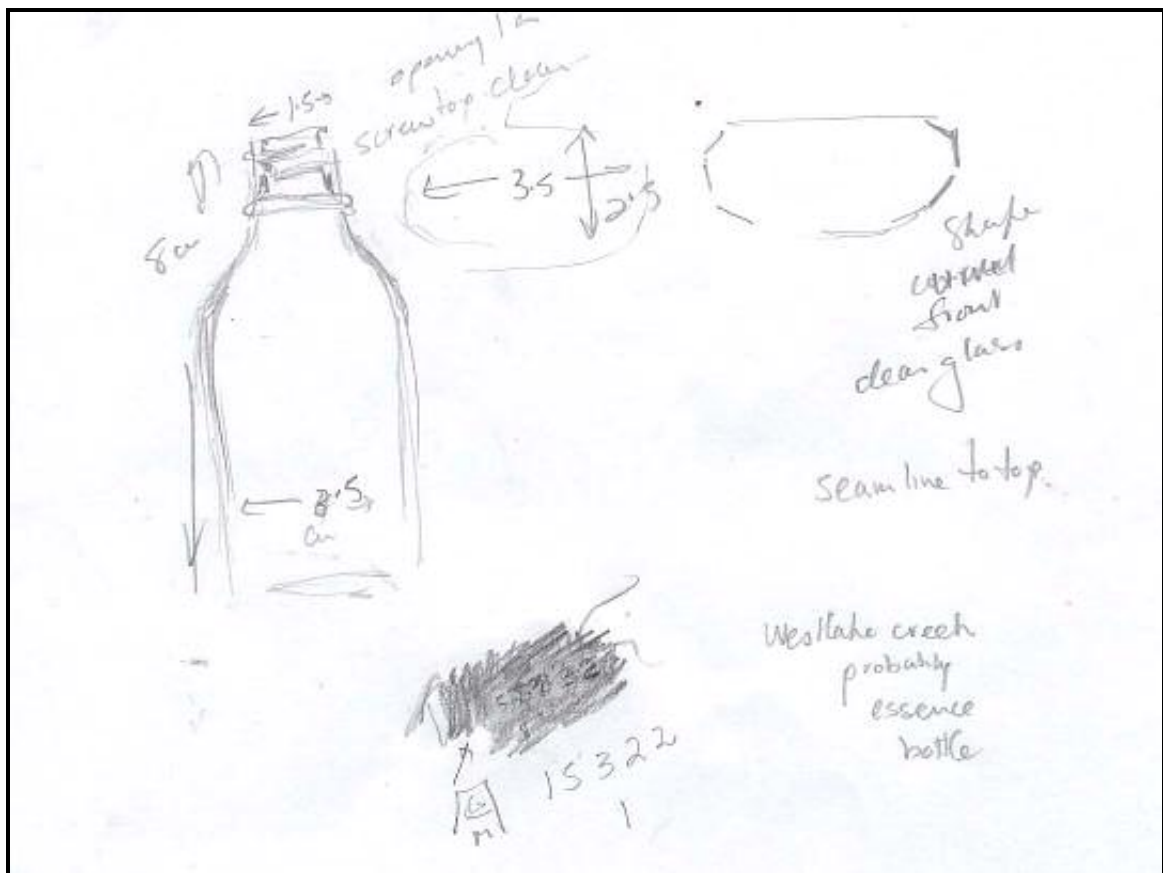 opening 1
screwtop clear
1.5
8 cm
3.5
2.5
shape
front
clear glass
seam line to top.
3.5
cm
Westlake creek
probably
essence
bottle
15322
1
G
M